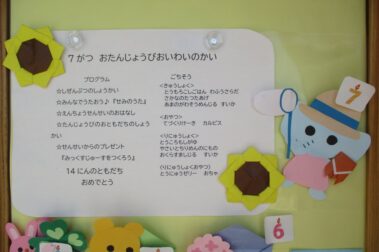 7がつ おたんじょうびおいわいのかい
プログラム
☆しぜんぶつのしょうかい
☆みんなでうたおう♪『せみのうた』
☆えんちょうせんせいのおはなし
☆たんじょうびのおともだちのしょう
かい
☆せんせいからのプレゼント
『みっくすじゅーすをつくろう』
14にんのともだち
おめでとう
ごちそう
<きゅうしょく>
とうもろこしごはん わふうさらだ
さかなのたつたあげ
あまのがわそうめんじる すいか
<おやつ>
てづくりけーき カルピス
<りにゅうしょく>
とうころもしがゆ
やさいとちりめんのにもの
おくらすましじる すいか
<りにゅうしょくおやつ>
とうにゅうぜりー おちゃ
7
6